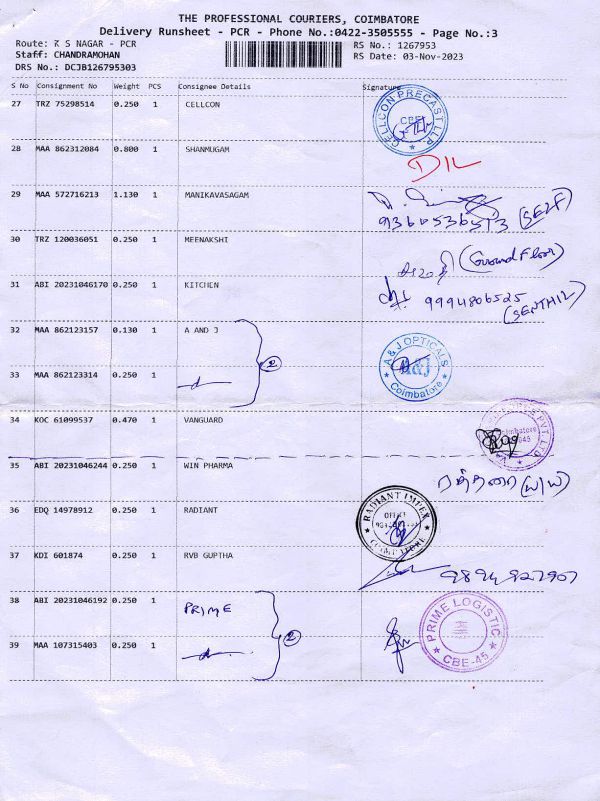 THE PROFESSIONAL COURIERS, COIMBATORE
Delivery Runsheet - PCR - Phone No.:0422-3505555 - Page No.:3
Route: K S NAGAR - PCR
RS No.: 1267953
Staff: CHANDRAMOHAN
RS Date: 03-Nov-2023
DRS No.: DCJB126795303
S No Consignment No Weight PCS Consignee Details Signature
27 TRZ 75298514 0.250 1 CELLCON
CELLCON PRECAST LLP
CBE
28 MAA 862312084 0.800 1 SHANMUGAM
DIL
29 MAA 572716213 1.130 1 MANIKAVASAGAM
9360536513 (SELF)
30 TRZ 120036051 0.250 1 MEENAKSHI
(Ground Floor)
31 ABI 20231046170 0.250 1 KITCHEN
9994806525
(SENTHIL)
32 MAA 862123157 0.130 1 A AND J
2
A & J OPTICALS
A&J
Coimbatore
33 MAA 862123314 0.250 1
34 KOC 61099537 0.470 1 VANGUARD
PVT LTD
Coimbatore
35 ABI 20231046244 0.250 1 WIN PHARMA
36 EDQ 14978912 0.250 1 RADIANT
RADIANT IMPEX
COIMBATORE
37 KDI 601874 0.250 1 RVB GUPTHA
38 ABI 20231046192 0.250 1 PRIME
2
PRIME LOGISTIC
CBE-45
39 MAA 107315403 0.250 1